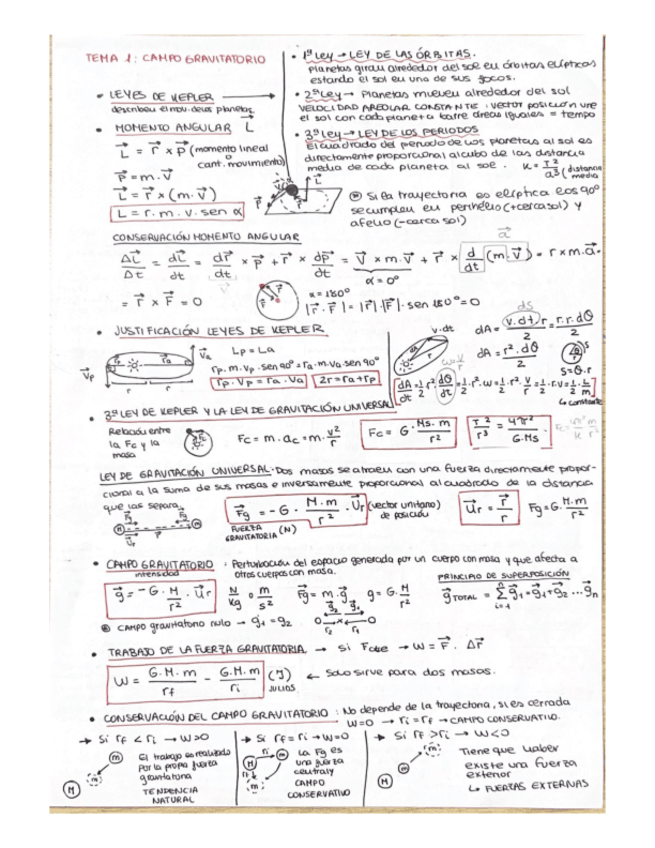 TEMA 1: CAMPO GRAVITATORIO
• LEYES DE KEPLER →
describen el mov. de los planetas
• 1ª Ley → LEY DE LAS ÓRBITAS.
Planetas giran alrededor del sol en órbitas elípticas
estando el sol en uno de sus focos.
• 2ª Ley → Planetas mueven alrededor del sol
VELOCIDAD AREOLAR CONSTANTE: vector posición une
el sol con cada planeta barre áreas iguales = tiempo
• 3ª Ley → LEY DE LOS PERIODOS
El cuadrado del periodo de los planetas al sol es
directamente proporcional al cubo de las distancia
media de cada planeta al sol. K = T²/a³ (distancia media)
• MOMENTO ANGULAR L
L = r × p (momento lineal
o
cant. movimiento)
p = m · v
L = r × (m · v)
L = r · m · v · sen α
Si la trayectoria es elíptica los 90º
se cumplen en perihelio (+cerca sol) y
afelio (-cerca sol)
CONSERVACIÓN MOMENTO ANGULAR
ΔL/Δt = dL/dt = dr/dt × p + r × dp/dt = v × m · v + r × d/dt (m · v) = r × m · a =
α = 0º
a
= r × F = 0
α = 180º
|r · F| = |r| · |F| · sen 180º = 0
• JUSTIFICACIÓN LEYES DE KEPLER
Lp = La
rp · m · vp · sen 90º = ra · m · va · sen 90º
rp · vp = ra · va
2r = ra + rp
v · dt
dS
dA = (v · dt) r / 2 = r · r · dθ / 2
dA = r² · dθ / 2
S = θ · r
ω = v/r
dA/dt = 1/2 r² · dθ/dt = 1/2 · r² · ω = 1/2 · r² · v/r = 1/2 · r · v = 1/2 · L/m
↳ constante
• 3ª LEY DE KEPLER Y LA LEY DE GRAVITACIÓN UNIVERSAL
Relación entre
la Fc y la
masa
Fc = m · ac = m · v²/r
Fc = G · Ms · m / r²
T²/r³ = 4π² / G · Ms
LEY DE GRAVITACIÓN UNIVERSAL: Dos masas se atraen con una fuerza directamente propor-
cional a la suma de sus masas e inversamente proporcional al cuadrado de la distancia
que las separa.
Fg = -G · M · m / r² · Ur (vector unitario
de posición
FUERZA
GRAVITATORIA (N)
Ur = r / r
Fg = G · M · m / r²
• CAMPO GRAVITATORIO: Perturbación del espacio generada por un cuerpo con masa y que afecta a
intensidad
otros cuerpos con masa.
g = -G · M / r² · Ur
N/Kg o m/s²
Fg = m · g
g = G · M / r²
PRINCIPIO DE SUPERPOSICIÓN
g TOTAL = Σ g₁ = g₁ + g₂ ... gn
campo gravitatorio nulo → g₁ = g₂
• TRABAJO DE LA FUERZA GRAVITATORIA → si F cte → W = F · Δr
W = G · M · m / rf - G · M · m / ri (J)
JULIOS
← Solo sirve para dos masas.
• CONSERVACIÓN DEL CAMPO GRAVITATORIO: No depende de la trayectoria, si es cerrada
W = 0 → ri = rf → CAMPO CONSERVATIVO.
→ Si rf < ri → W > 0
El trabajo es realizado
por la propia fuerza
gravitatoria
TENDENCIA
NATURAL
→ Si rf = ri → W = 0
La Fg es
una fuerza
central y
CAMPO
CONSERVATIVO
→ Si rf > ri → W < 0
Tiene que haber
existe una fuerza
exterior
↳ FUERZAS EXTERNAS